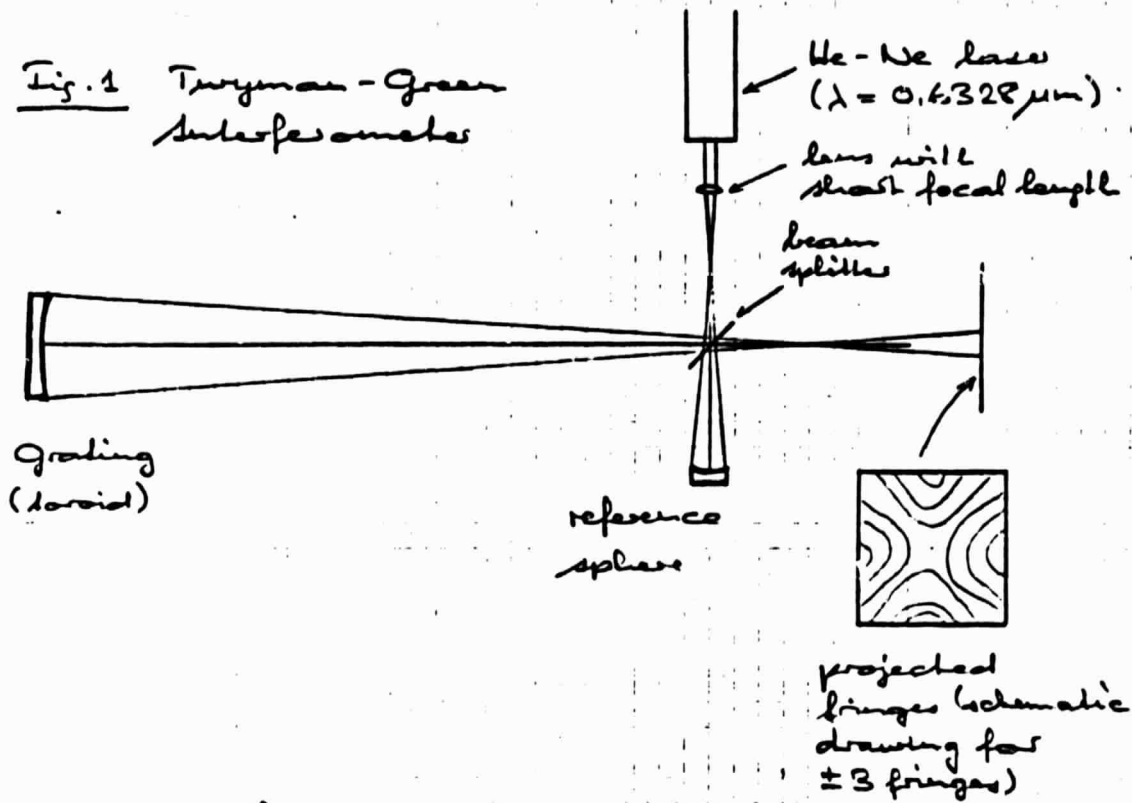 Fig. 1 Twyman-Green
Interferometer
He-Ne laser
(λ = 0,6328 μm)
lens with
short focal length
beam
splitter
Grating
(toroid)
reference
sphere
projected
fringes (schematic
drawing for
±3 fringes)